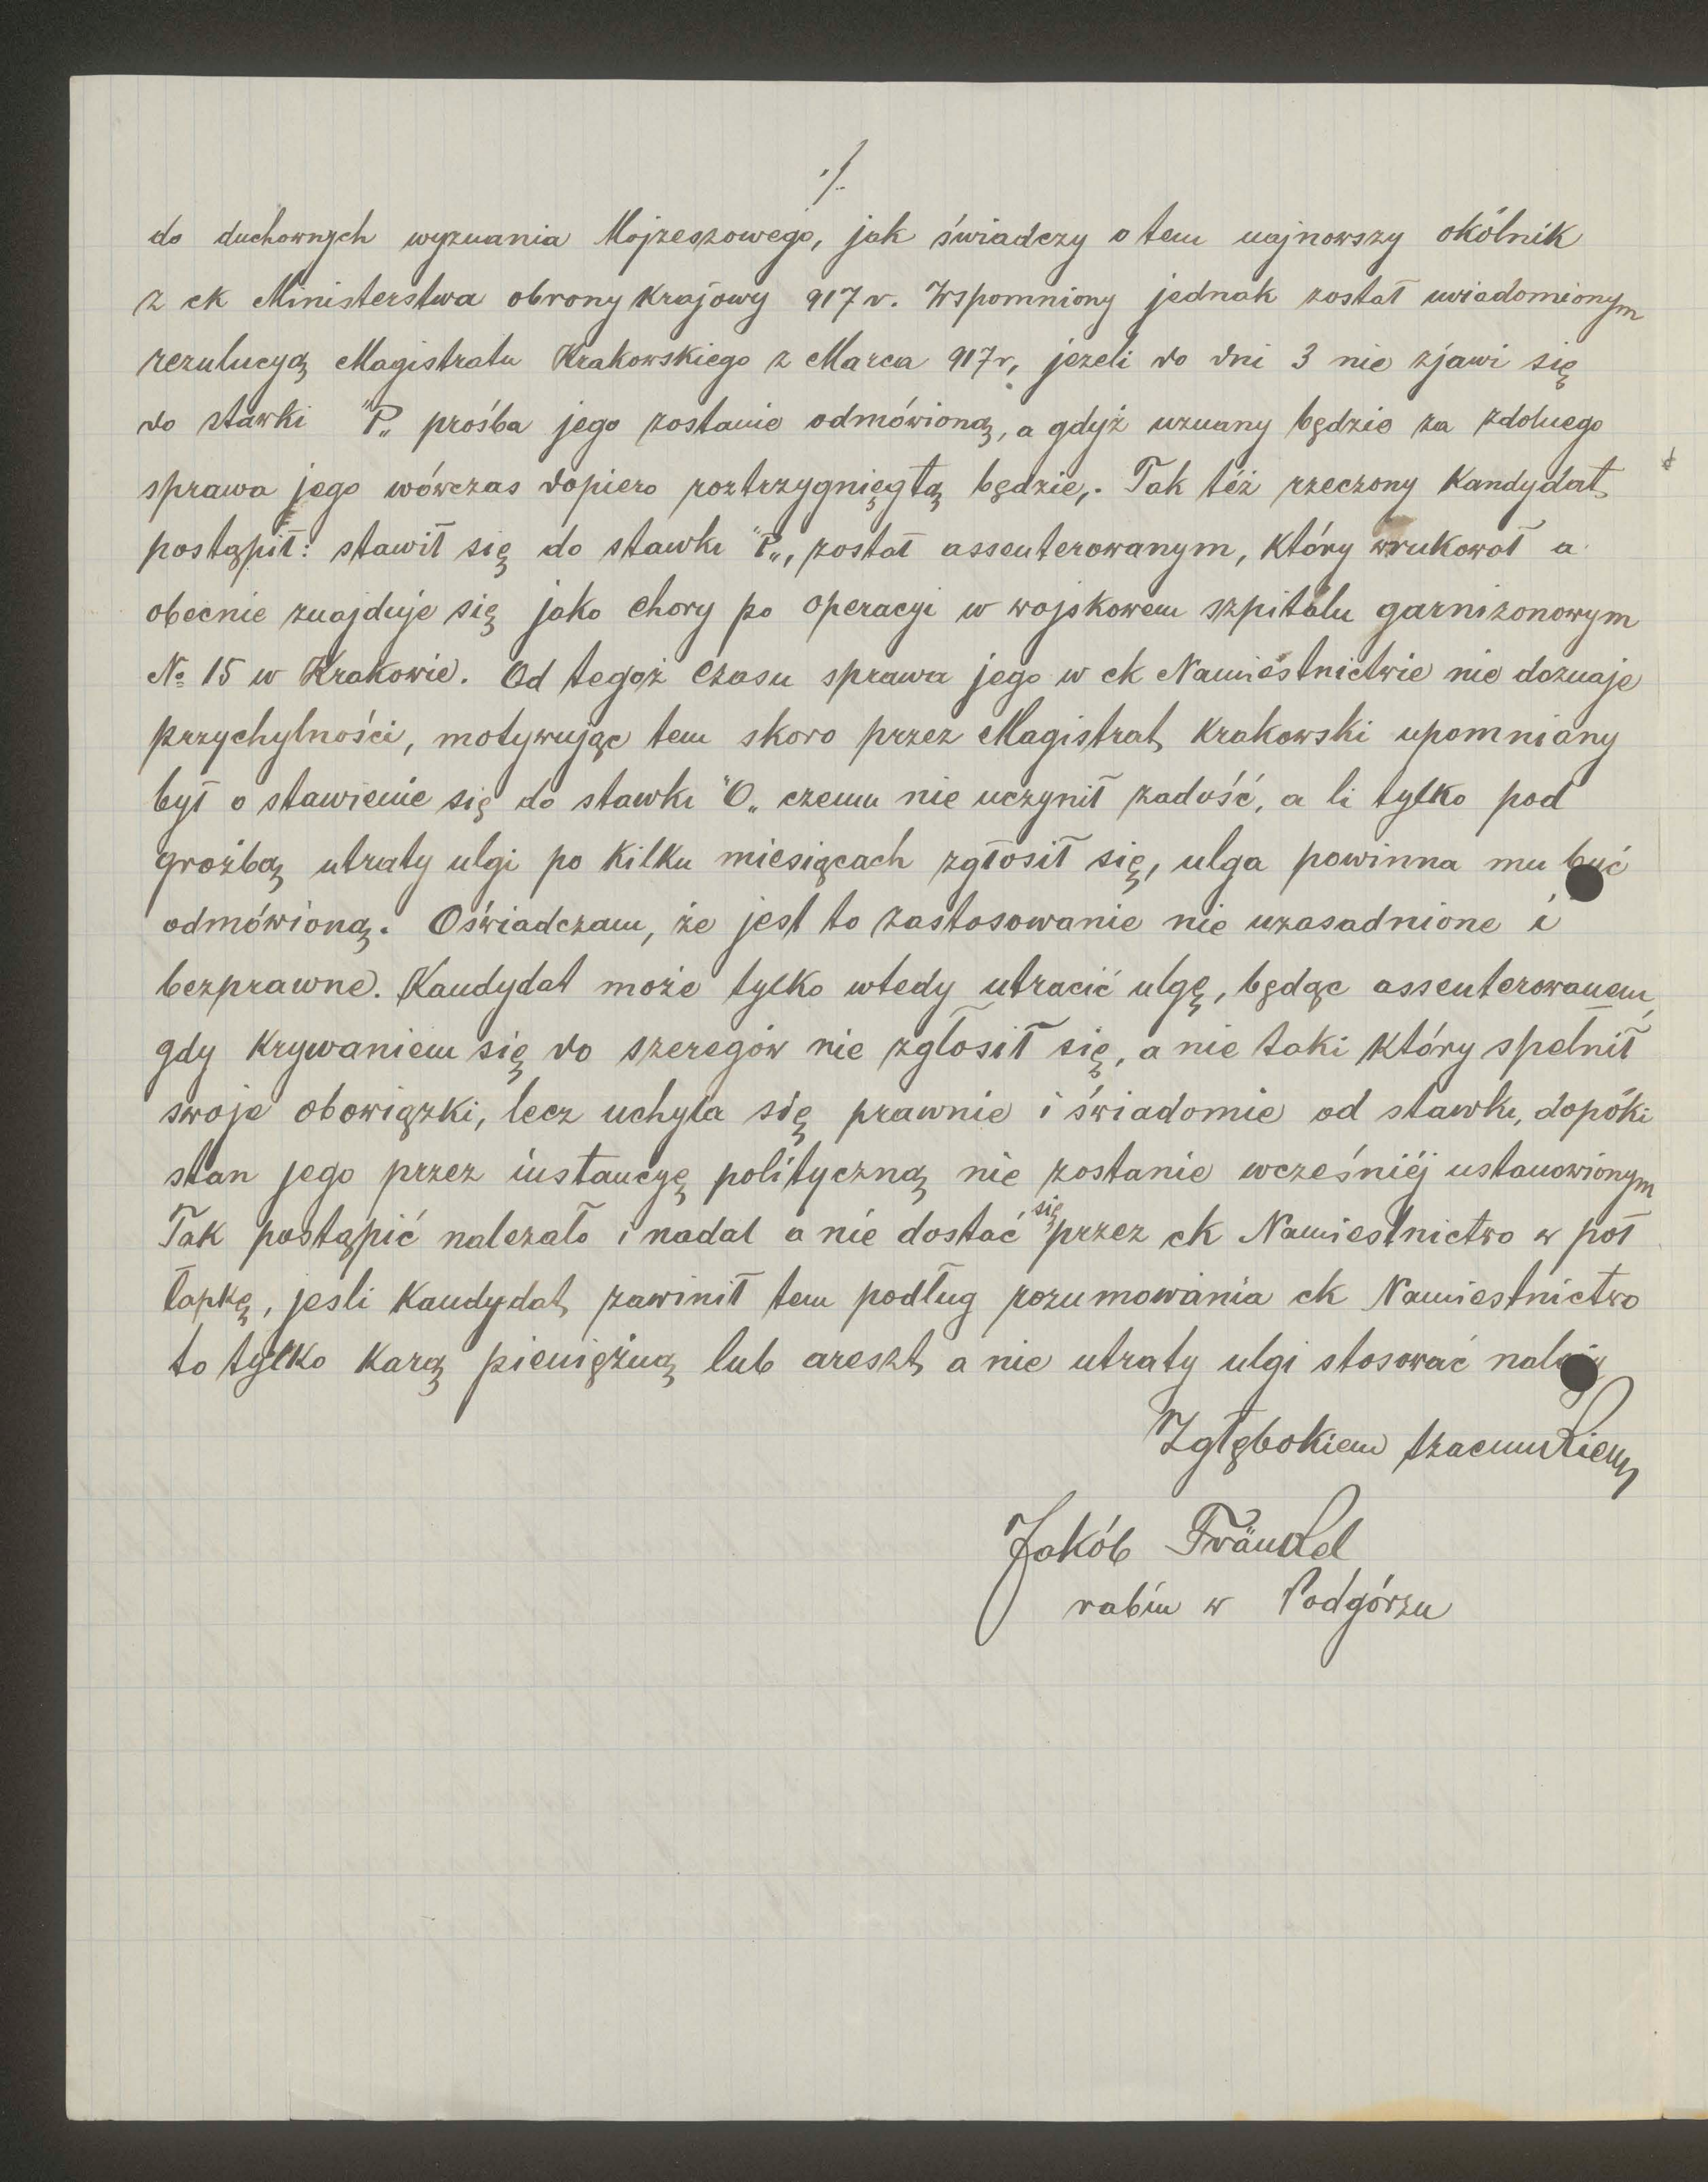 ./.
do duchownych wyznania Mojżeszowego, jak świadczy o tem najnowszy okólnik
z ck Ministerstwa obrony Krajowy 917 r. Wspomniony jednak został uwiadomionym
rezulucyą Magistratu Krakowskiego z Marca 917 r, jezeli do dni 3 nie zjawi się
do stawki "P„ prośba jego zostanie odmówioną, a gdyż uznany będzie za zdolnego
sprawa jego wówczas dopiero roztrzygnięgtą będzie,. Tak też rzeczony Kandydat
postąpił: stawił się do stawki "P„, został assenterowanym, który wrukował a
obecnie znajduje się jako chory po operacyi w wojskowem szpitalu garnizonowym
№ 15 w Krakowie. Od tegoż czasu sprawa jego w ck Namiestnictwie nie doznaje
przychylności, motywując tem skoro przez Magistrat Krakowski upomniany
był o stawienie się do stawki "O„ czemu nie uczynił zadość, a li tylko pod
groźbą utraty ulgi po kilku miesiącach zgłosił się, ulga powinna mu być
odmówioną. Oświadczam, że jest to zastosowanie nie uzasadnione i
bezprawne. Kandydat może tylko wtedy utracić ulgę, będąc assenterowanem,
gdy Krywaniem się do szeregów nie zgłosił się, a nie taki który spełnił
swoje obowiązki, lecz uchyla się prawnie i świadomie od stawki, dopóki
stan jego przez instancyę polityczną nie zostanie wcześniéj ustanowionym
Tak postąpić nalezało i nadal a nie dostać się przez ck Namiestnictwo w poł
łapkę, jesli Kandydat zawinił tem podług rozumowania ck Namiestnictwo
to tylko karą pieniężną lub areszt a nie utraty ulgi stosować należy
Z głębokiem szacunkiem
Jakób Fränkel
rabin w Podgórzu